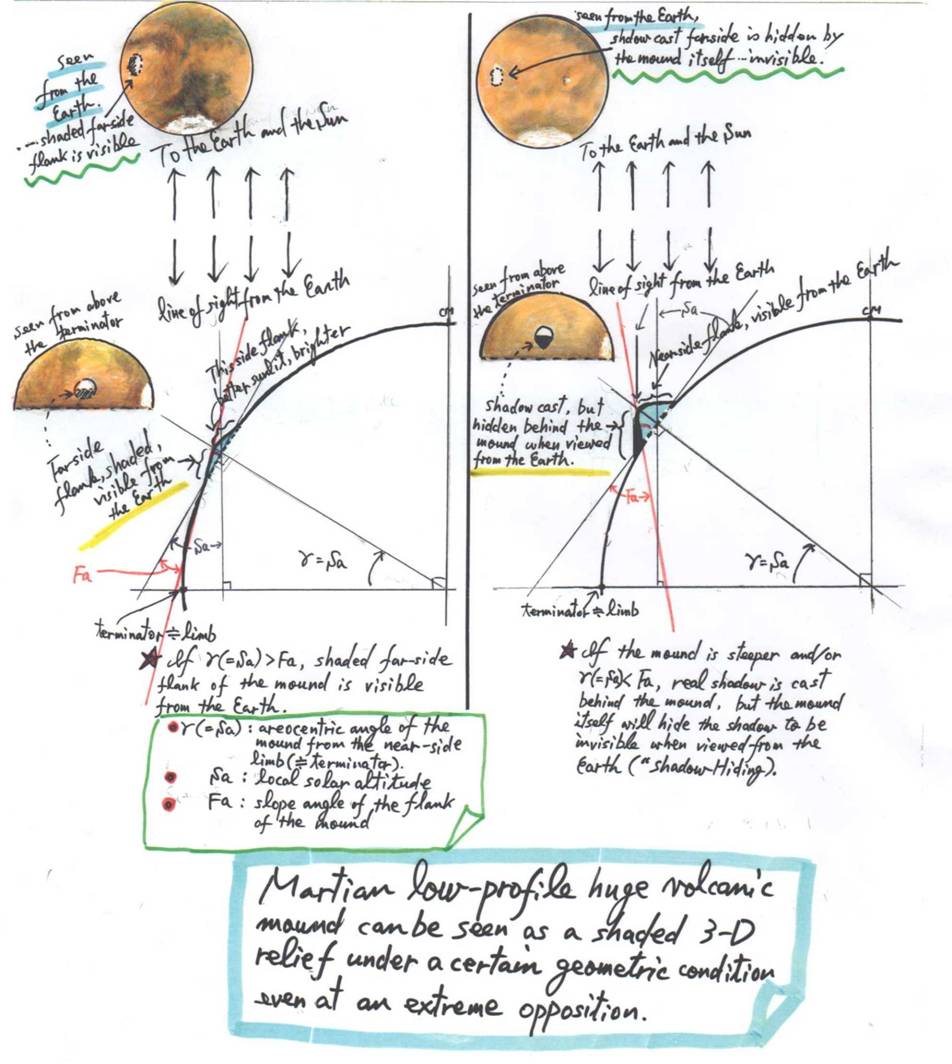 seen
from the
Earth.
...shaded far-side
flank is visible
To the Earth and the Sun
line of sight from the Earth
seen from above
the terminator
This side flank,
better sunlit, brighter
CM
Far-side
flank, shaded,
visible from
the Earth
Sa
Fa
γ=Sa
terminator≒limb
★ If γ(=Sa)>Fa, shaded far-side
flank of the mound is visible
from the Earth.
• γ(=Sa) : areocentric angle of the
mound from the near-side
limb(≒terminator).
• Sa : local solar altitude
• Fa : slope angle of the flank
of the mound
seen from the Earth,
shdow cast farside is hidden by
the mound itself...invisible.
To the Earth and the Sun
line of sight from the Earth
seen from above
the terminator
Sa
Nearside flank, visible from the Earth
CM
shadow cast, but
hidden behind the
mound when viewed
from the Earth.
Fa
γ=Sa
terminator≒limb
★ If the mound is steeper and/or
γ(=Sa)< Fa, real shadow is cast
behind the mound, but the mound
itself will hide the shadow to be
invisible when viewed from the
Earth ("Shadow-Hiding).
Martian low-profile huge volcanic
mound can be seen as a shaded 3-D
relief under a certain geometric condition
even at an extreme opposition.